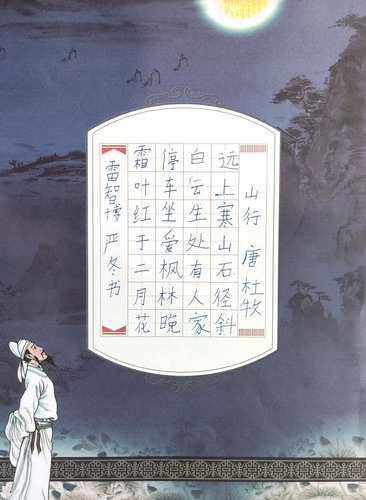 山行 唐 杜牧
远上寒山石径斜
白云生处有人家
停车坐爱枫林晚
霜叶红于二月花
雷智博 严冬书